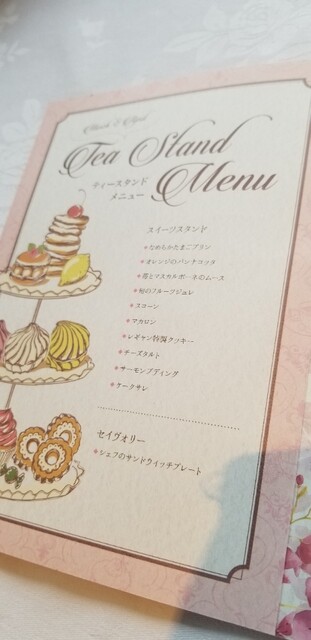 Tea Stand
Menu
ティースタンド
メニュー
スイーツスタンド
なめらかたまごプリン
オレンジのパンナコッタ
苺とマスカルポーネのムース
旬のフルーツジュレ
スコーン
マカロン
レギャン特製クッキー
チーズタルト
サーモンプディング
ケークサレ
セイヴォリー
シェフのサンドウイッチプレート